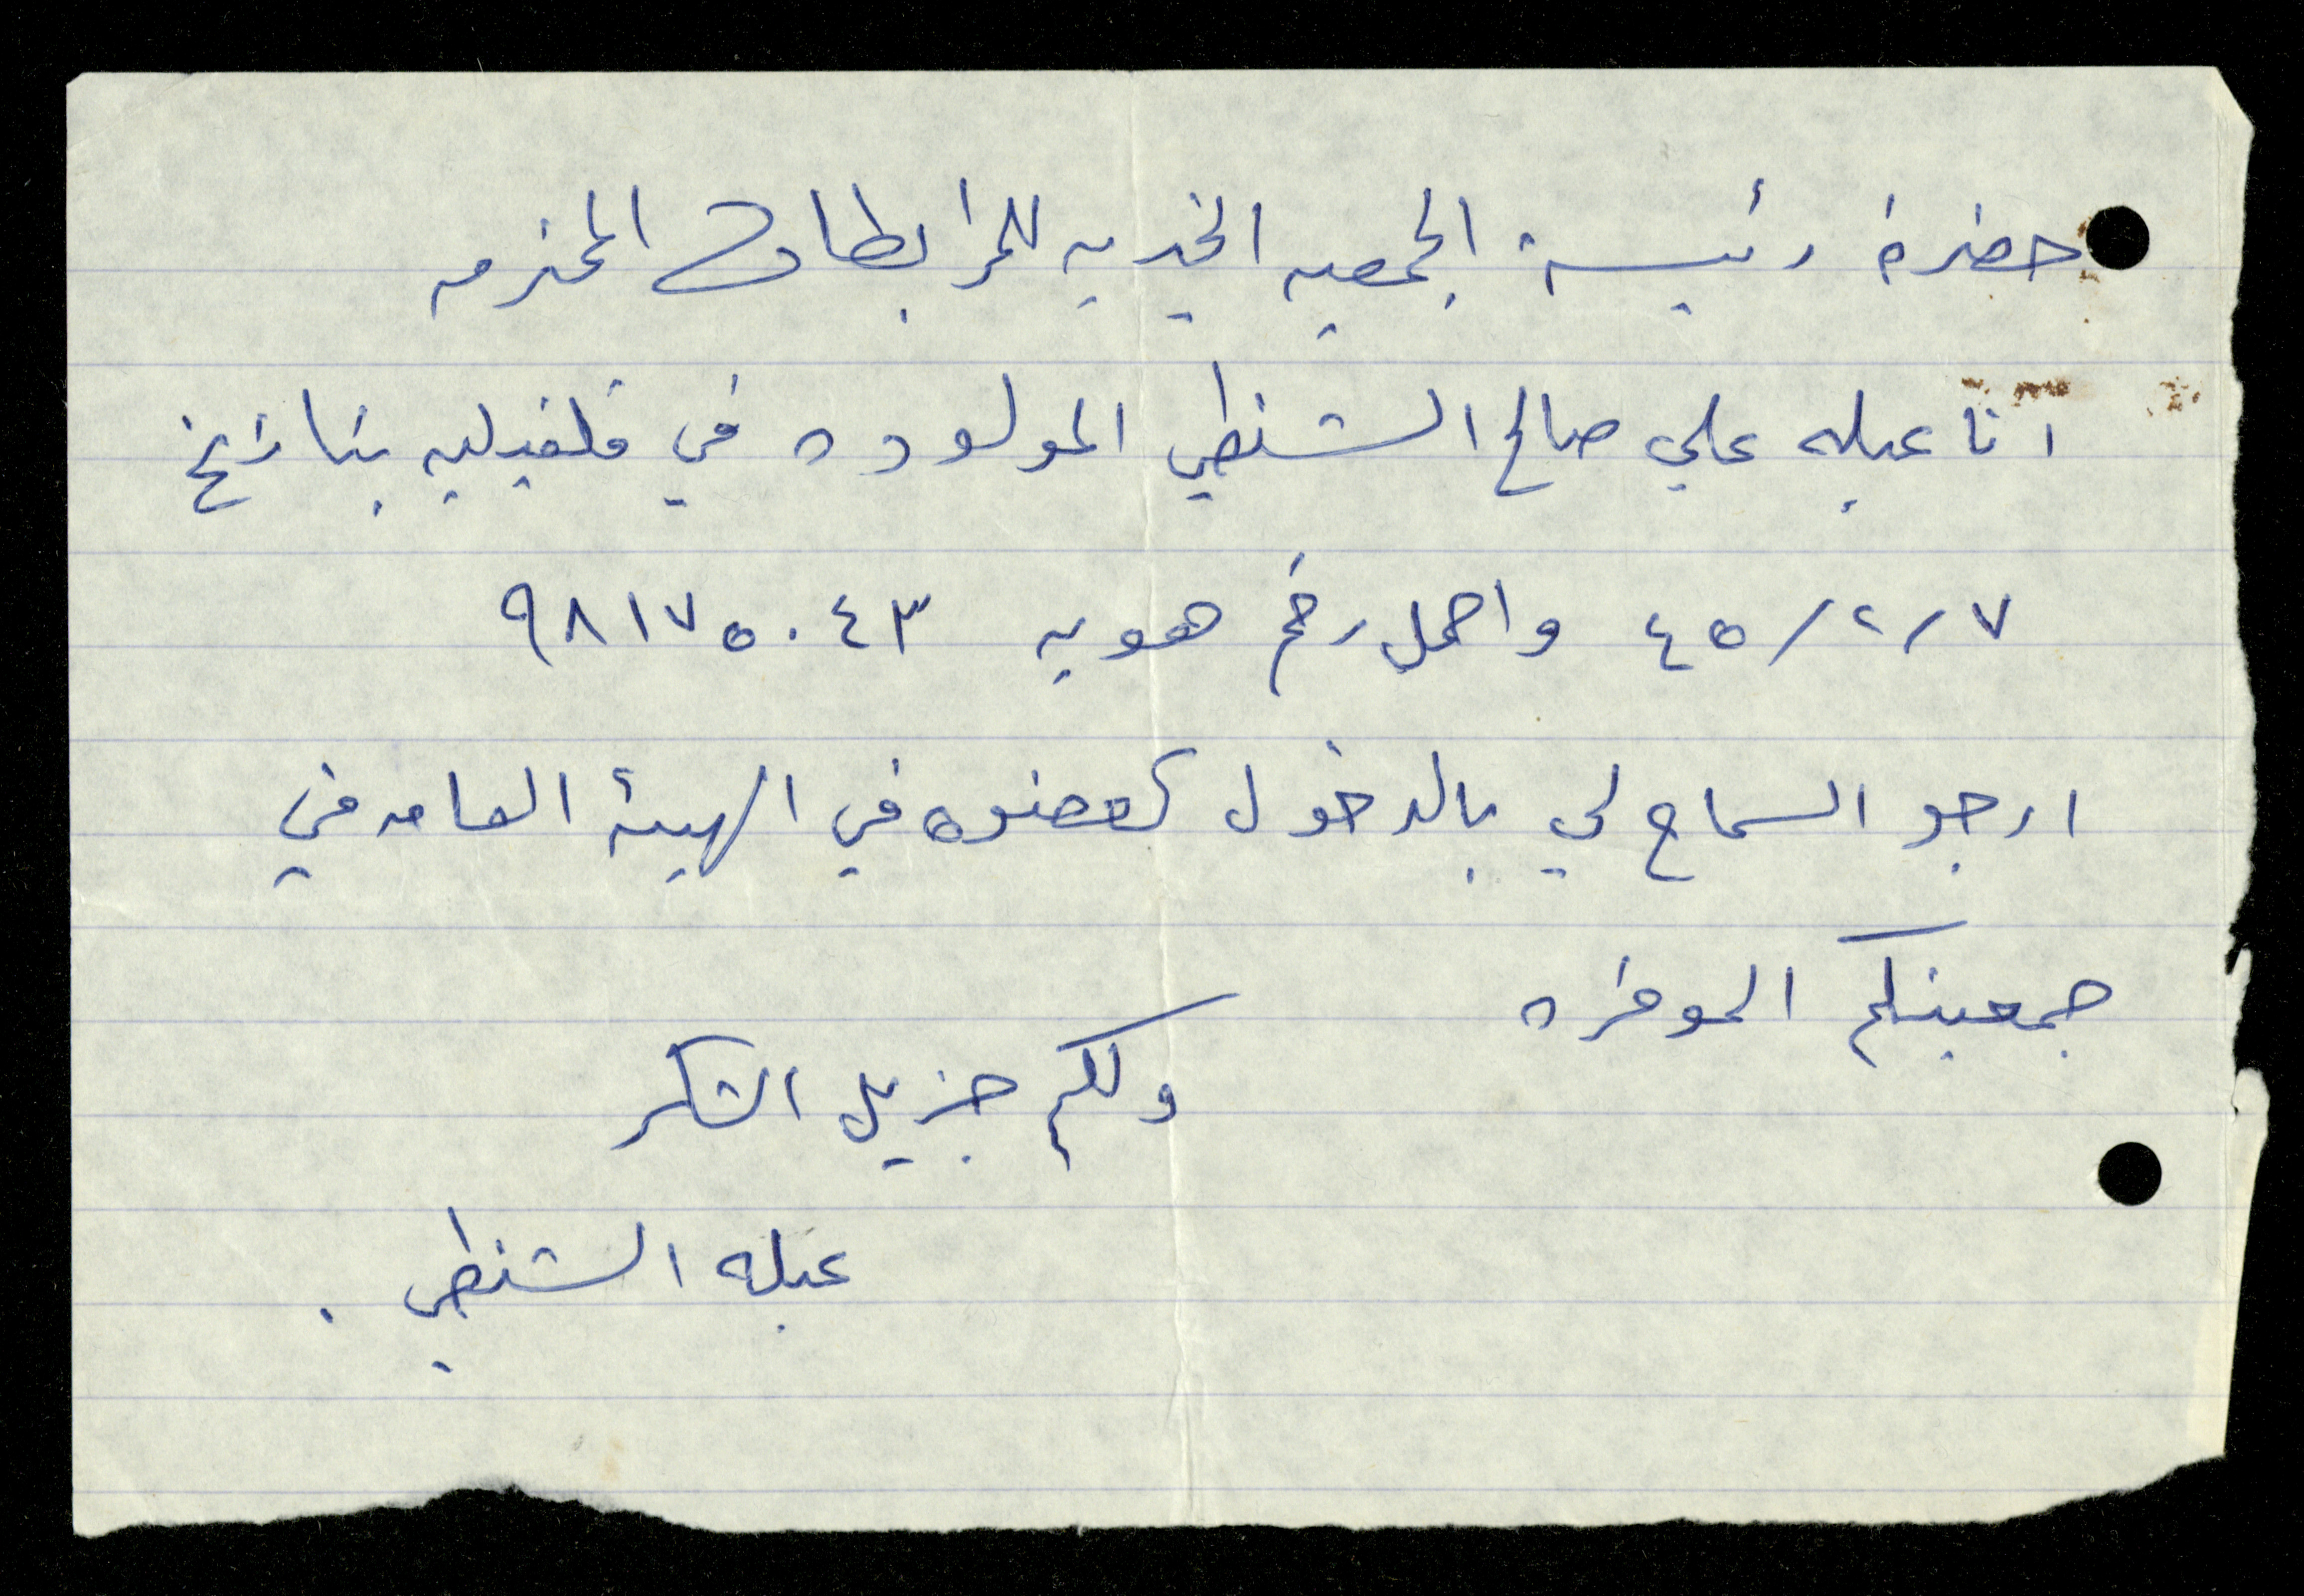 حضرة رئيسة الجمعيه الخيريه للمرابطات المحترمه
انا عبله علي صالح الشنطي المولوده في قلقيليه بتاريخ
٤٥/٢/٧ واحمل رقم هويه ٩٨١٧٥٠٤٣
ارجو السماح لي بالدخول كعضوه في الهيئة العامه في
جمعيتكم الموقره
ولكم جزيل الشكر
عبله الشنطي .